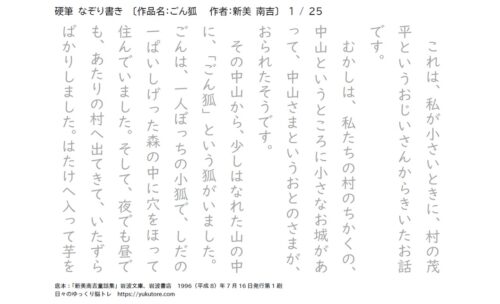 硬筆 なぞり書き 〔作品名:ごん狐　作者:新美 南吉〕 1 / 25
これは、私が小さいときに、村の茂
平というおじいさんからきいたお話
むかしは、私たちの村のちかくの、
中山というところに小さなお城があ
って、中山さまというおとのさまが、
おられたそうです。
その中山から、少しはなれた山の中
に、「ごん狐」という狐がいました。
ごんは、一人ぼっちの小狐で、しだの
一ぱいしげった森の中に穴をほって
住んでいました。そして、夜でも昼で
も、あたりの村へ出てきて、いたずら
ばかりしました。はたけへ入って芋を
底本:「新美南吉童話集」岩波文庫、岩波書店　1996（平成8）年7月16日発行第1刷
日々のゆっくり脳トレ　https://yukutore.com